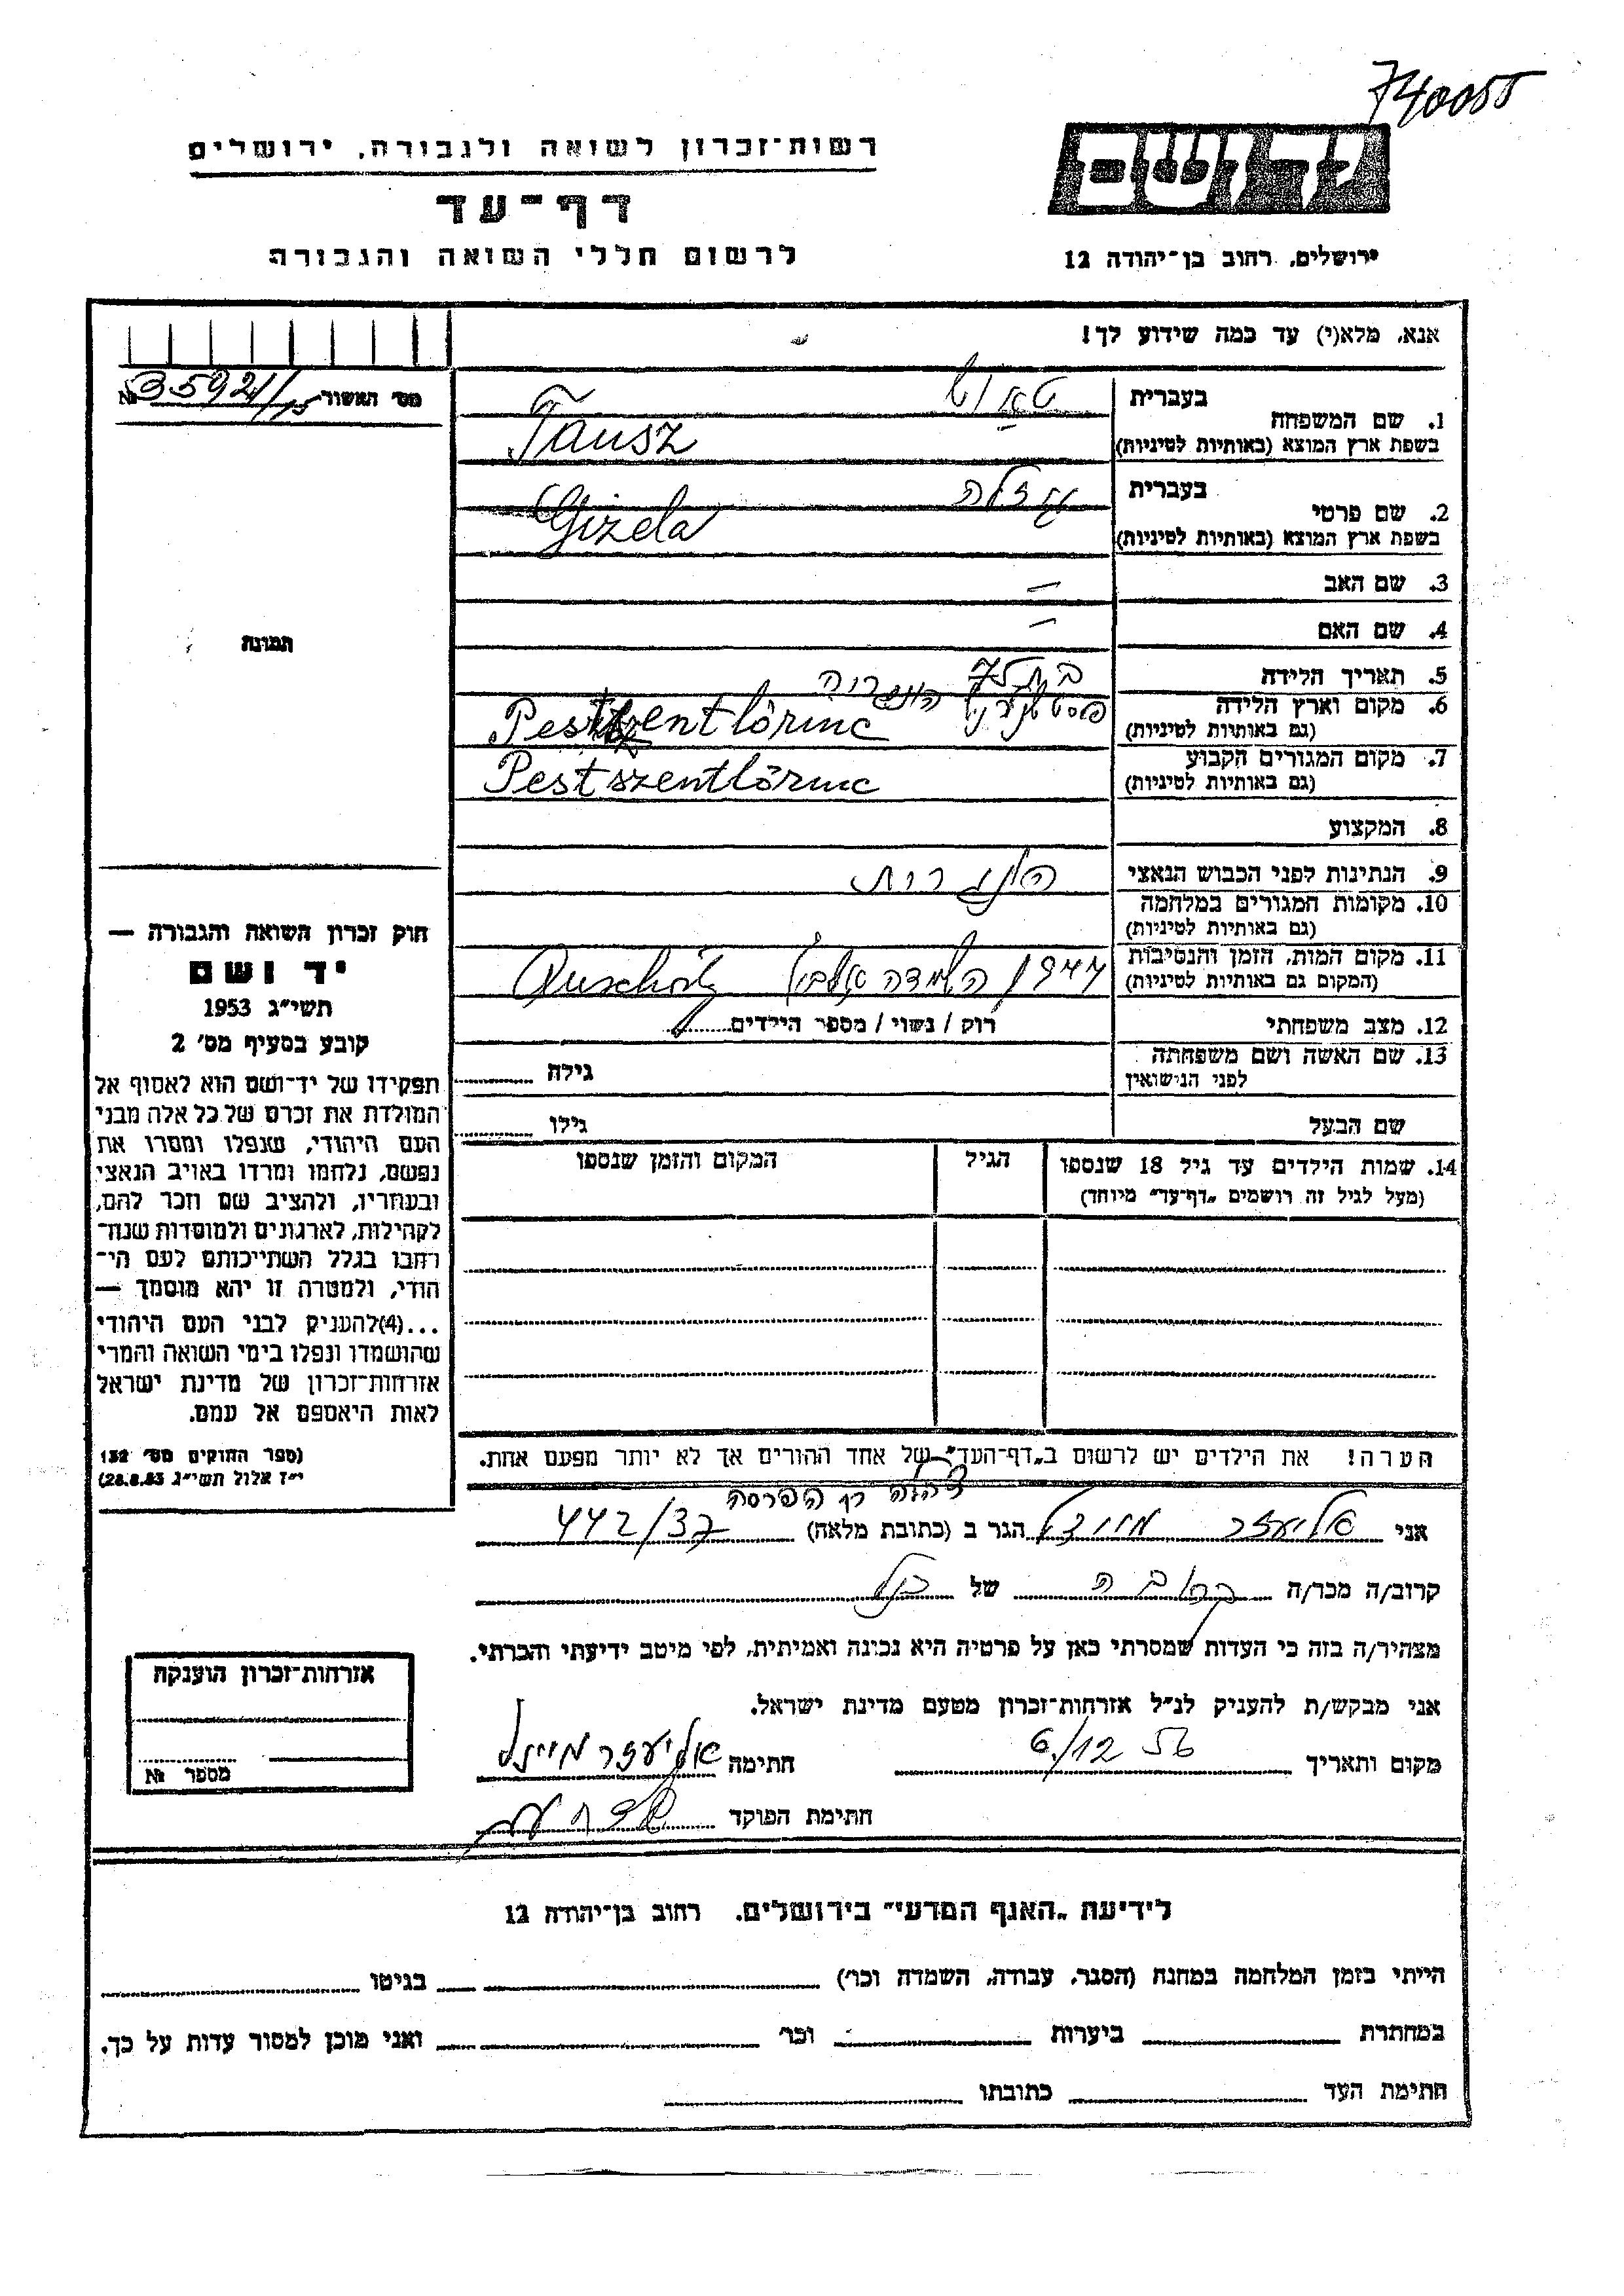 740055
יד ושם
רשות־זכרון לשואה ולגבורה, ירושלים
דף־עד
לרשום חללי השואה והגבורה
ירושלים, רחוב בן־יהודה 12
אנא, מלא(י) עד כמה שידוע לך!
מס׳ האשור №
1. שם המשפחה
בעברית
בשפת ארץ המוצא (באותיות לטיניות)
Tausz
2. שם פרטי
בעברית
גיזלה
בשפת ארץ המוצא (באותיות לטיניות)
Gizela
3. שם האב —
4. שם האם —
תמונה
5. תאריך הלידה
6. מקום וארץ הלידה
(גם באותיות לטיניות)
הונגריה
Pestszentlőrinc
7. מקום המגורים הקבוע
(גם באותיות לטיניות)
Pestszentlőrinc
8. המקצוע
9. הנתינות לפני הכבוש הנאצי
הונגרית
10. מקומות המגורים במלחמה
(גם באותיות לטיניות)
11. מקום המות, הזמן והנסיבות
(המקום גם באותיות לטיניות)
1944
12. מצב משפחתי
רוק / נשוי / מספר הילדים
13. שם האשה ושם משפחתה
לפני הנישואין
גילה
שם הבעל
גילו
14. שמות הילדים עד גיל 18 שנספו
(מעל לגיל זה רושמים „דף־עד״ מיוחד)
הגיל
המקום והזמן שנספו
הערה! את הילדים יש לרשום ב„דף־העד״ של אחד ההורים אך לא יותר מפעם אחת.
חוק זכרון השואה והגבורה —
יד ושם
תשי״ג 1953
קובע בסעיף מס׳ 2
תפקידו של יד־ושם הוא לאסוף אל
המולדת את זכרם של כל אלה מבני
העם היהודי, שנפלו ומסרו את
נפשם, נלחמו ומרדו באויב הנאצי
ובעוזריו, ולהציב שם וזכר להם,
לקהילות, לארגונים ולמוסדות שנח־
רחבו בגלל השתייכותם לעם הי־
הודי, ולמטרה זו יהא מוסמך —
...(4)להעניק לבני העם היהודי
שהושמדו ונפלו בימי השואה והמרי
אזרחות־זכרון של מדינת ישראל
לאות היאספם אל עמם.
(ספר החוקים מס׳ 132
י״ז אלול תשי״ג 28.8.53)
אני אליעזר הגר ב (כתובת מלאה) 442/37
קרוב/ה מכר/ה של
מצהיר/ה בזה כי העדות שמסרתי כאן על פרטיה היא נכונה ואמיתית, לפי מיטב ידיעתי והכרתי.
אני מבקש/ת להעניק לנ״ל אזרחות־זכרון מטעם מדינת ישראל.
מקום ותאריך 6/12 56 חתימה אליעזר
חתימת הפוקד
אזרחות־זכרון הוענקה
מספר №
לידיעת „האגף המדעי״ בירושלים. רחוב בן־יהודה 12
הייתי בזמן המלחמה במחנה (הסגר, עבודה, השמדה וכר׳) בגיטו
במחתרת ביערות וכר׳ ואני מוכן למסור עדות על כך.
חתימת העד כתובתו